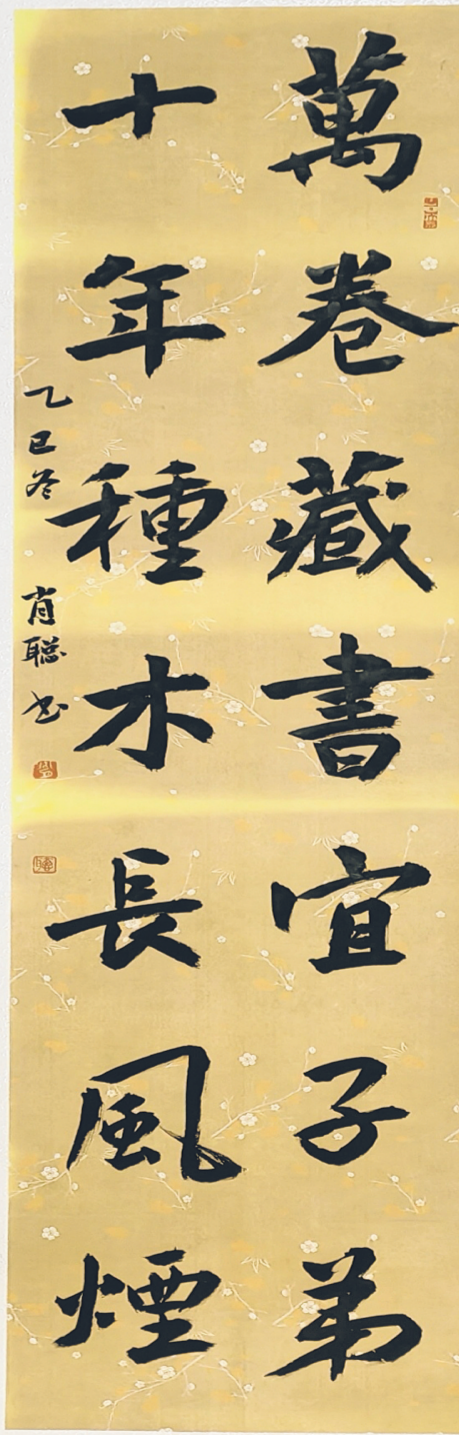 萬卷藏書宜子弟
十年種木長風煙
乙巳冬 肖聰书